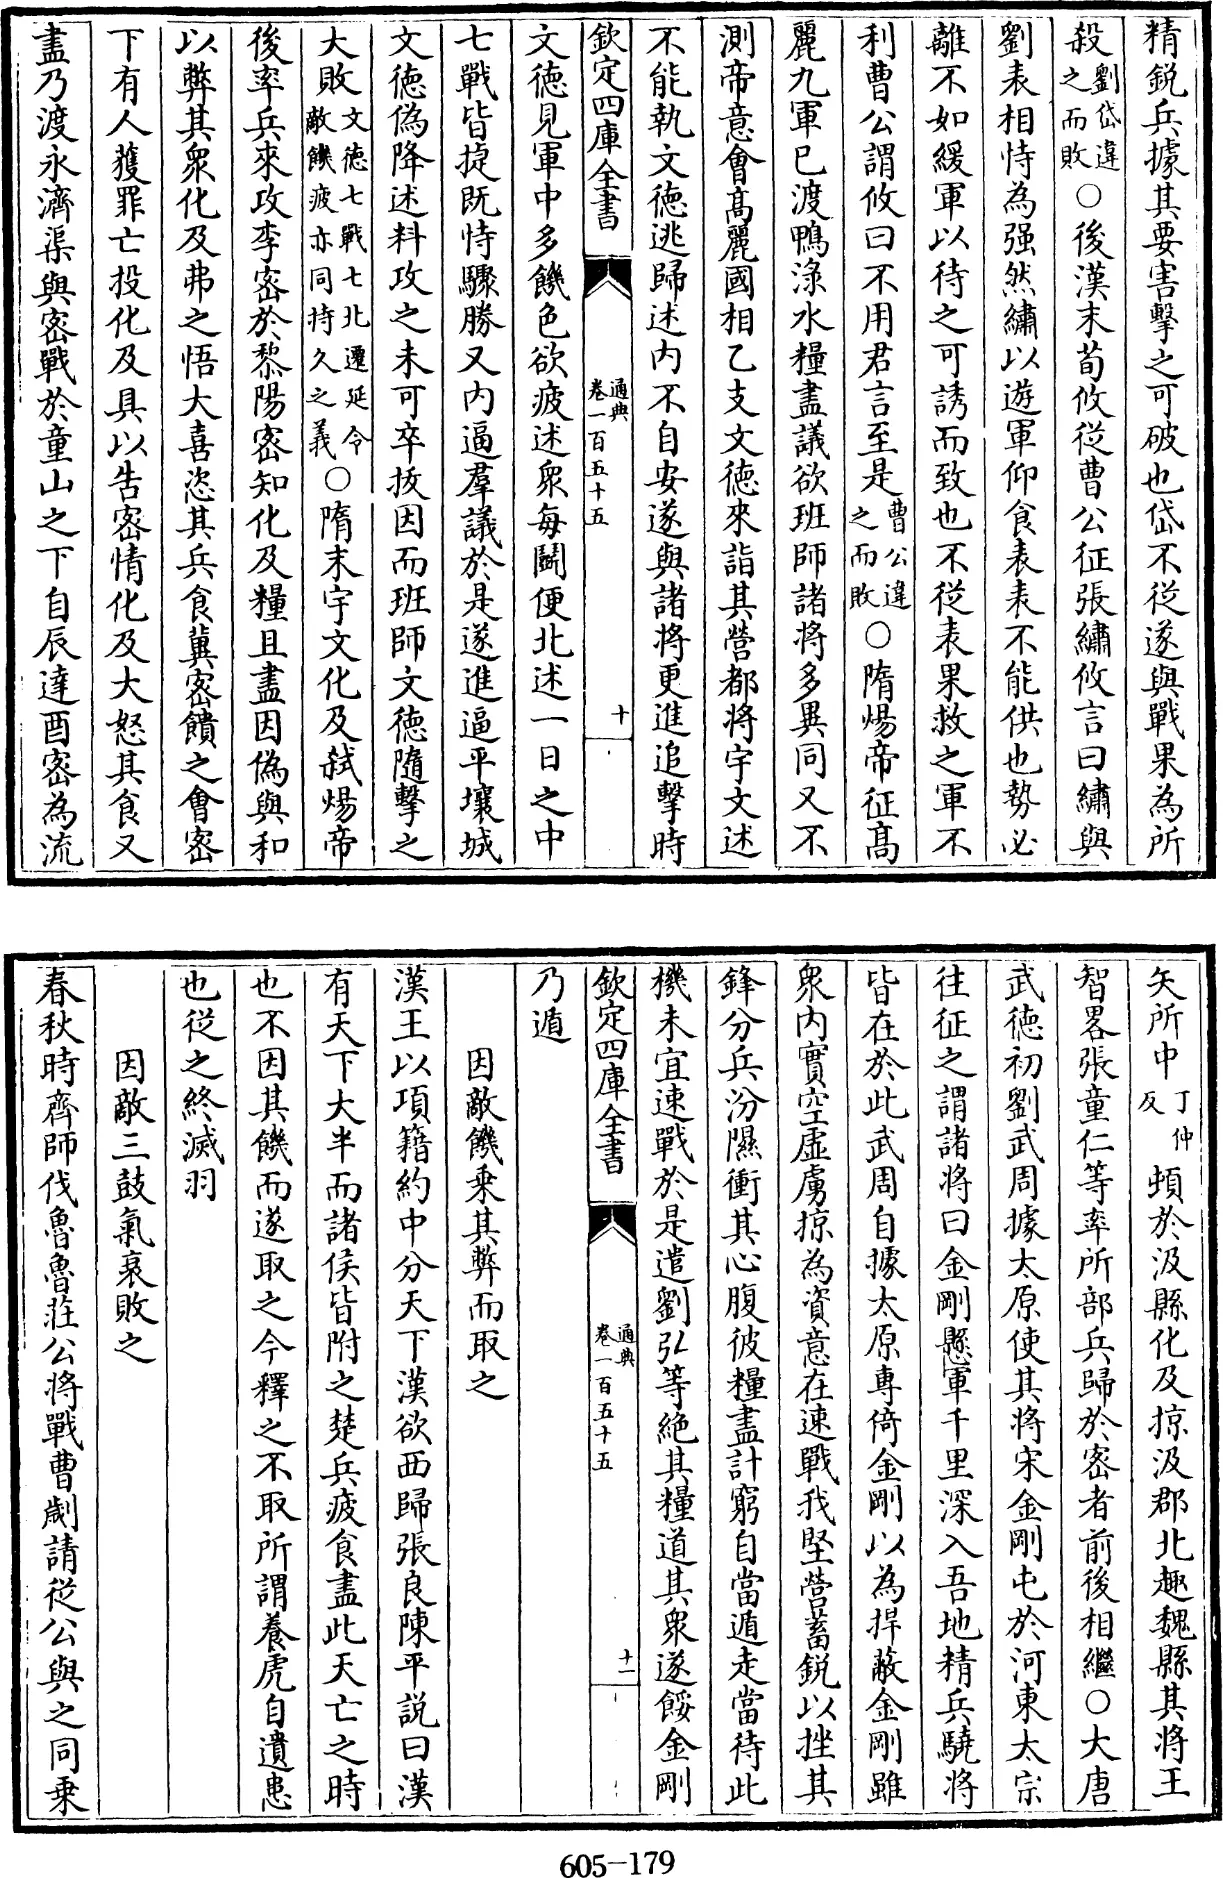 精鋭兵據其要害擊之可破也岱不從遂與戰果為所
殺劉岱違之而敗○後漢末荀攸從曹公征張繡攸言曰繡與
劉表相恃為强然繡以遊軍仰食表表不能供也勢必
離不如緩軍以待之可誘而致也不從表果救之軍不
利曹公謂攸曰不用君言至是曹公違之而敗○隋煬帝征髙
麗九軍已渡鴨渌水糧盡議欲班師諸将多異同又不
測帝意會髙麗國相乙支文德來詣其營都將宇文述
不能執文德逃歸述内不自安遂與諸將更進追擊時
欽定四庫全書
通典
卷一百五十五
十
文德見軍中多饑色欲疲述衆每鬭便北述一日之中
七戰皆㨗既恃驟勝又内逼羣議於是遂進逼平壤城
文德偽降述料攻之未可卒拔因而班師文德隨擊之
大敗文德七戰七北遷延令敵饑疲亦同持久之義○隋末宇文化及弑煬帝
後率兵來攻李密於黎陽密知化及糧且盡因偽與和
以弊其衆化及弗之悟大喜恣其兵食冀密饋之會密
下有人獲罪亡投化及具以告密情化及大怒其食又
盡乃渡永濟渠與密戰於童山之下自辰達酉密為流
矢所中丁仲反頓於汲縣化及掠汲郡北趣魏縣其將王
智畧張童仁等率所部兵歸於密者前後相繼○大唐
武德初劉武周據太原使其將宋金剛屯於河東太宗
往征之謂諸將曰金剛懸軍千里深入吾地精兵驍將
皆在於此武周自據太原專倚金剛以為捍蔽金剛雖
衆内實空虚虜掠為資意在速戰我堅營蓄鋭以挫其
鋒分兵汾隰衝其心腹彼糧盡計窮自當遁走當待此
機未宜速戰於是遣劉弘等絶其糧道其衆遂餒金剛
欽定四庫全書
通典
卷一百五十五
十一
乃遁
因敵饑乗其弊而取之
漢王以項籍約中分天下漢欲西歸張良陳平說曰漢
有天下大半而諸侯皆附之楚兵疲食盡此天亡之時
也不因其饑而遂取之今釋之不取所謂養虎自遺患
也從之終滅羽
因敵三鼓氣衰敗之
春秋時齊師伐魯魯莊公將戰曹劌請從公與之同乗
605-179